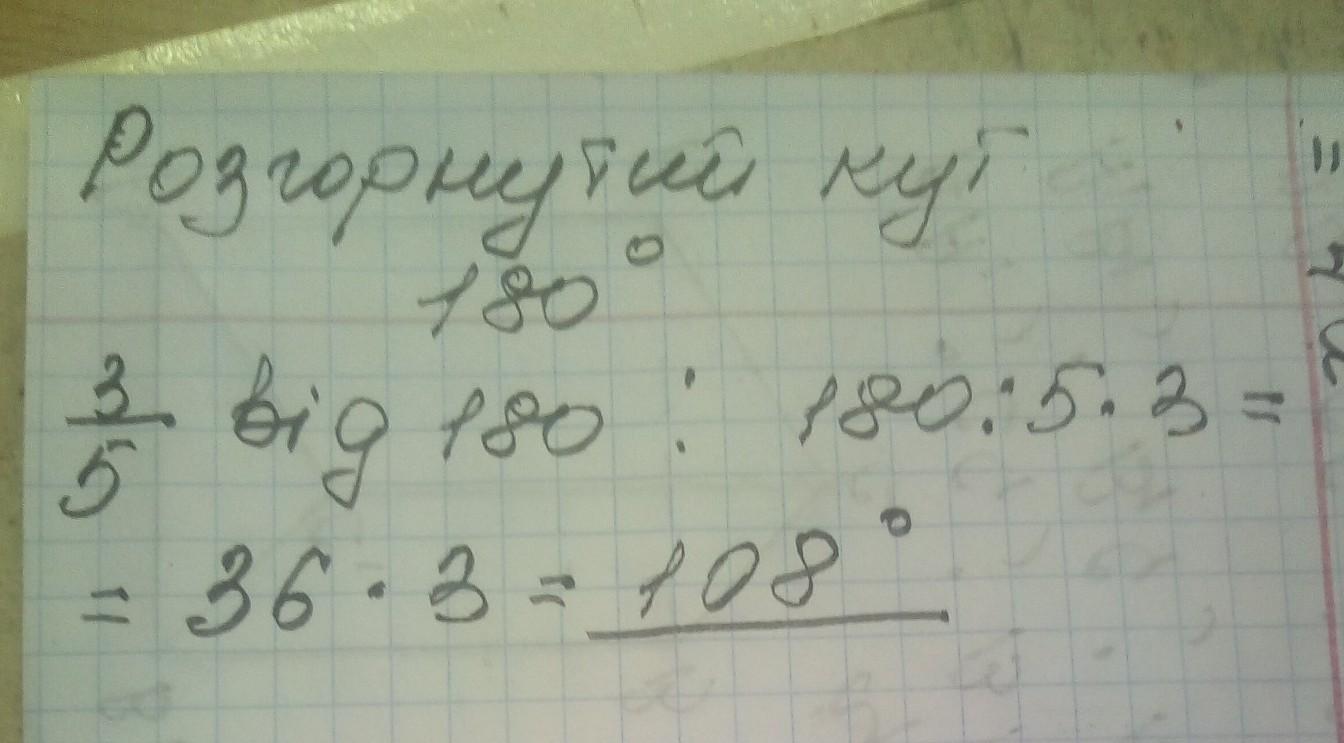 Розгорнутий кут
180°
3/5 від 180 : 180:5·3=
= 36·3 = 108°